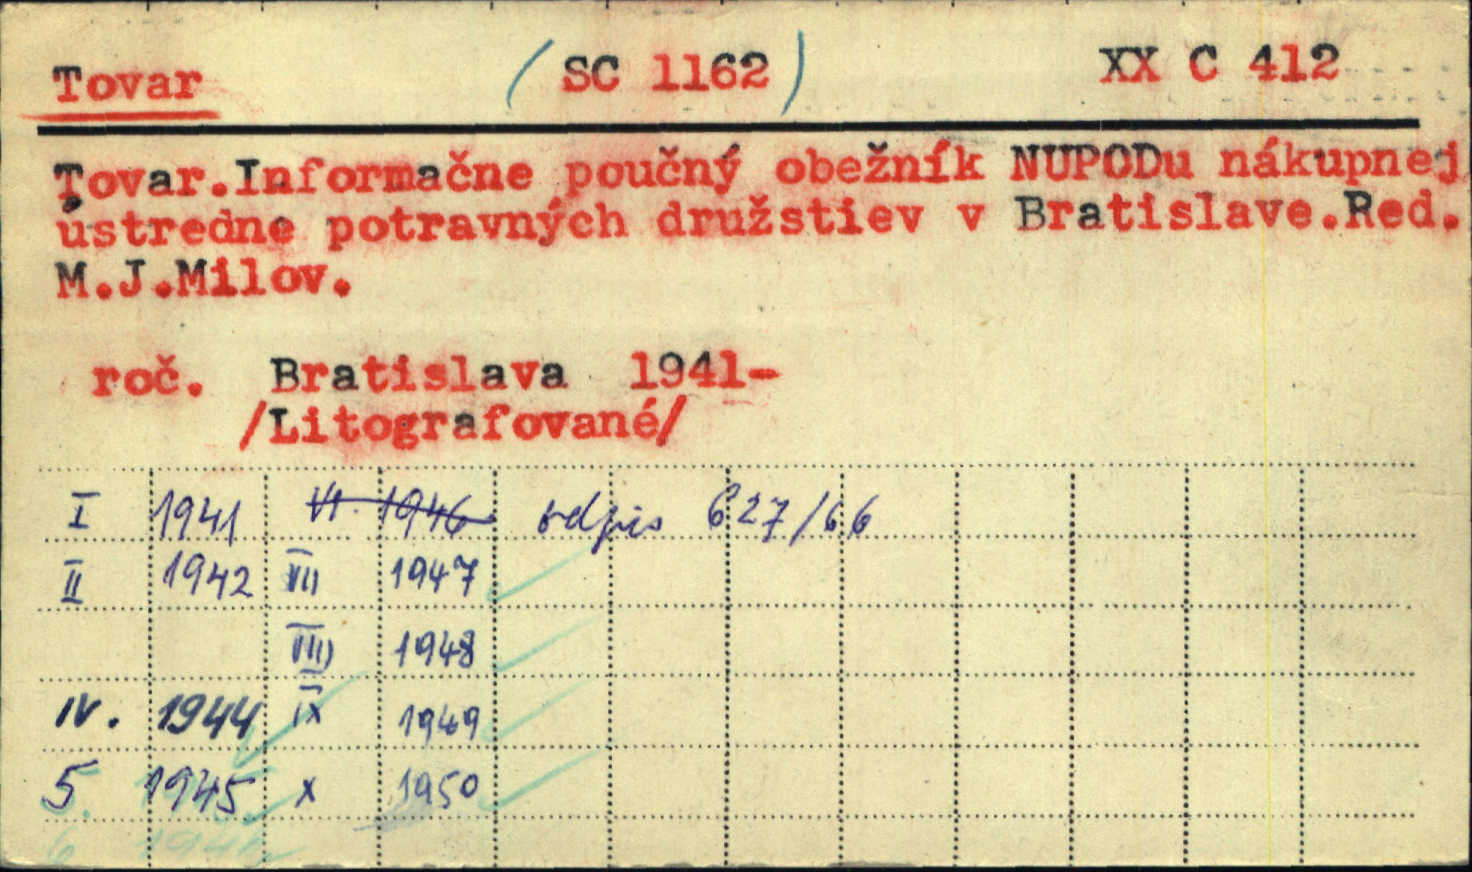 Tovar (SC 1162) XX C 412
Tovar.Informačne poučný obežník NUPODu nákupnej
ústredne potravných družstiev v Bratislave.Red.
M.J.Milov.
roč. Bratislava 1941-
/Litografované/
I 1941 VI. 1946 odpis 627/66
II 1942 VII 1947
VIII 1948
IV. 1944 IX 1949
5. 1945 X 1950
6 1946